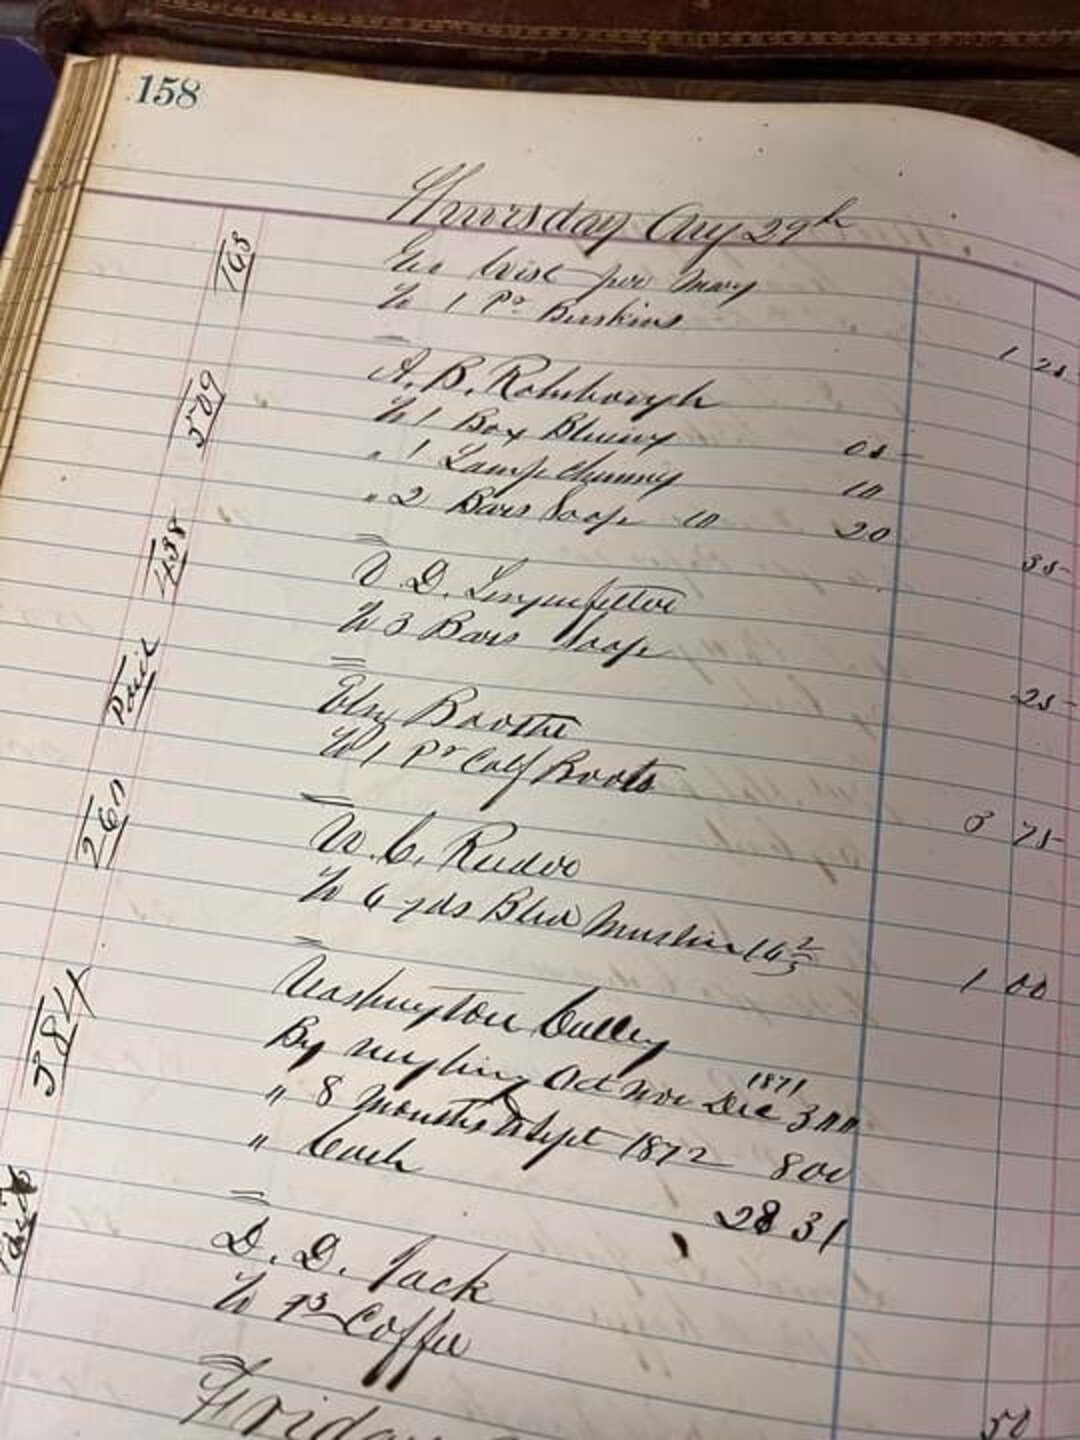 158
Thursday Aug 29th
168 Geo Wise per Mary
To 1 Pr Buskins 1 25
509 A. B. Rohrbough
To 1 Box Bluing 05
" 1 Lamp Chimney 10
" 2 Bars Soap 10 20 35
438 V. D. Lingenfelter
To 3 Bars Soap 25
Paid Booth
To 1 Pr Calf Boots 3 75
260 W. C.
To 6 yds Blea Muslin 16 2/3 1 00
584 Washington Culley
By weighing Oct Nov Dec 1871 3 00
" 8 Months to Sept 1872 8 00
" Cash 28 31
Paid D. D. Jack
To Coffee 50
Friday